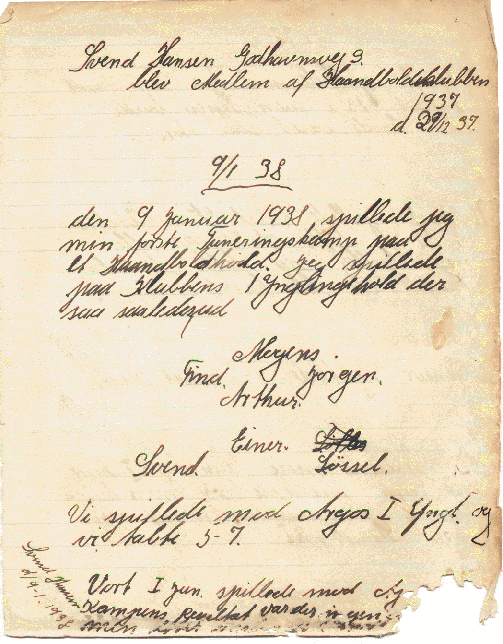 Svend Hansen Godhavnsvej 3.
blev Medlem af Haandboldklubben
1937
d. 29/12 37.
9/1 38
den 9 Januar 1938 spillede jeg
min første Tuneringskamp paa
et Haandboldhold. Jeg spillede
paa Klubbens 1 Ynglinghold der
saa saaledes ud
Mogens.
Find. Jørgen.
Arthur.
Einer.
Svend Lössel.
Vi spillede mod Argos I Yngl. og
vi tabte 5-7.
Svend Hansen
9-1-1938
Vort I jun. spillede mod
Kampens Resultat var der ingen
men